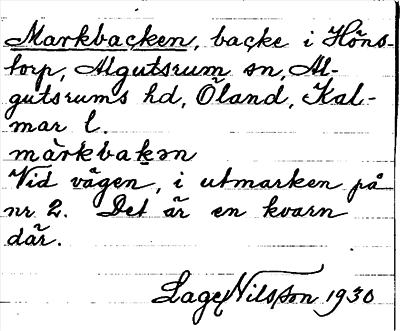 Markbacken, backe i Höns-
torp, Algutsrum sn, Al-
gutsrums hd, Öland, Kal-
mar l.
màrkbakən
Vid vägen, i utmarken på
nr 2. Det är en kvarn
där.
Lage Nilsson 1930